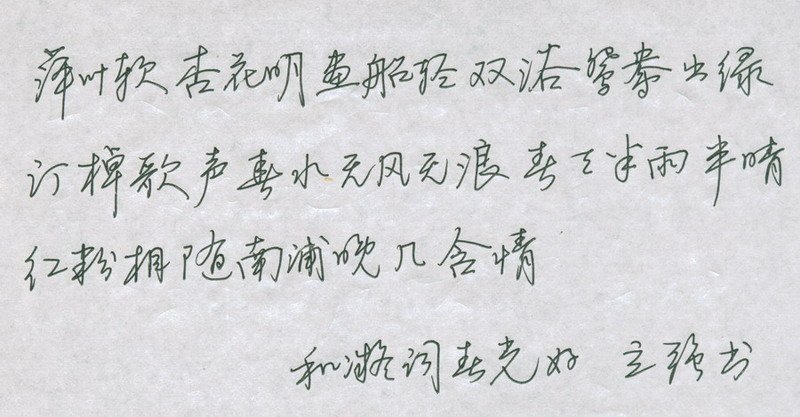 蘋叶软杏花明画船轻双浴鸳鸯出绿
汀棹歌声春水无风无浪春天半雨半晴
红粉相随南浦晚几含情
和凝词春光好 立强书